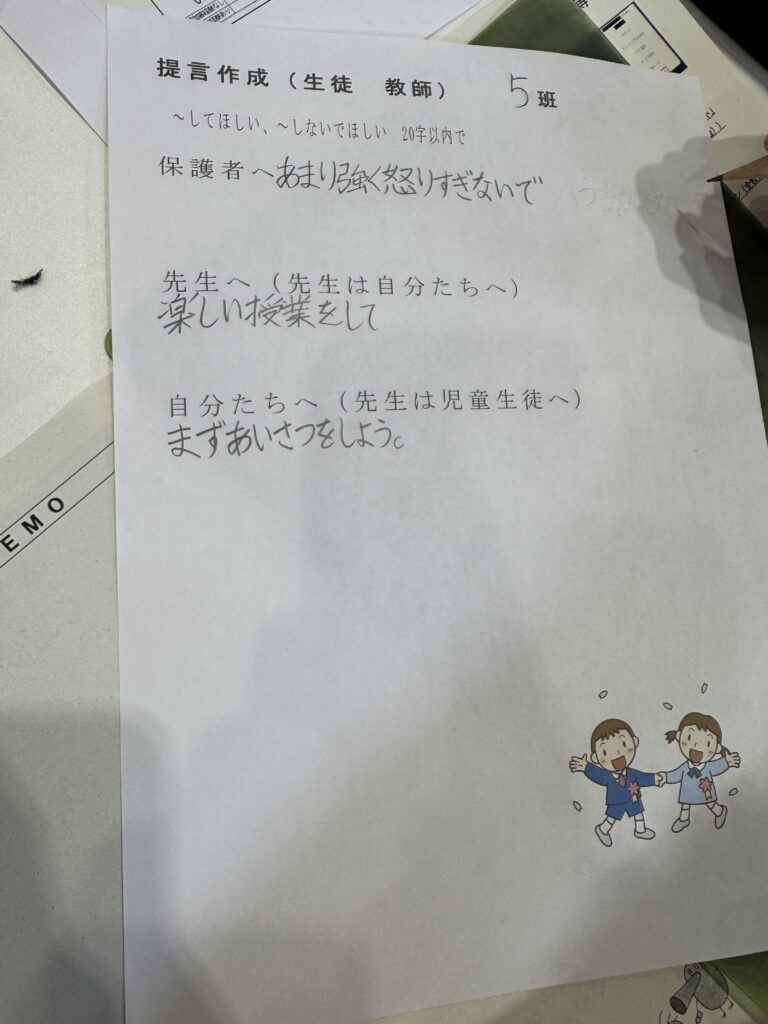 提言作成（生徒　教師）　5班
～してほしい、～しないでほしい　20字以内で
保護者へあまり強く怒りすぎないで
先生へ（先生は自分たちへ）
楽しい授業をして
自分たちへ（先生は児童生徒へ）
まずあいさつをしよう。
EMO